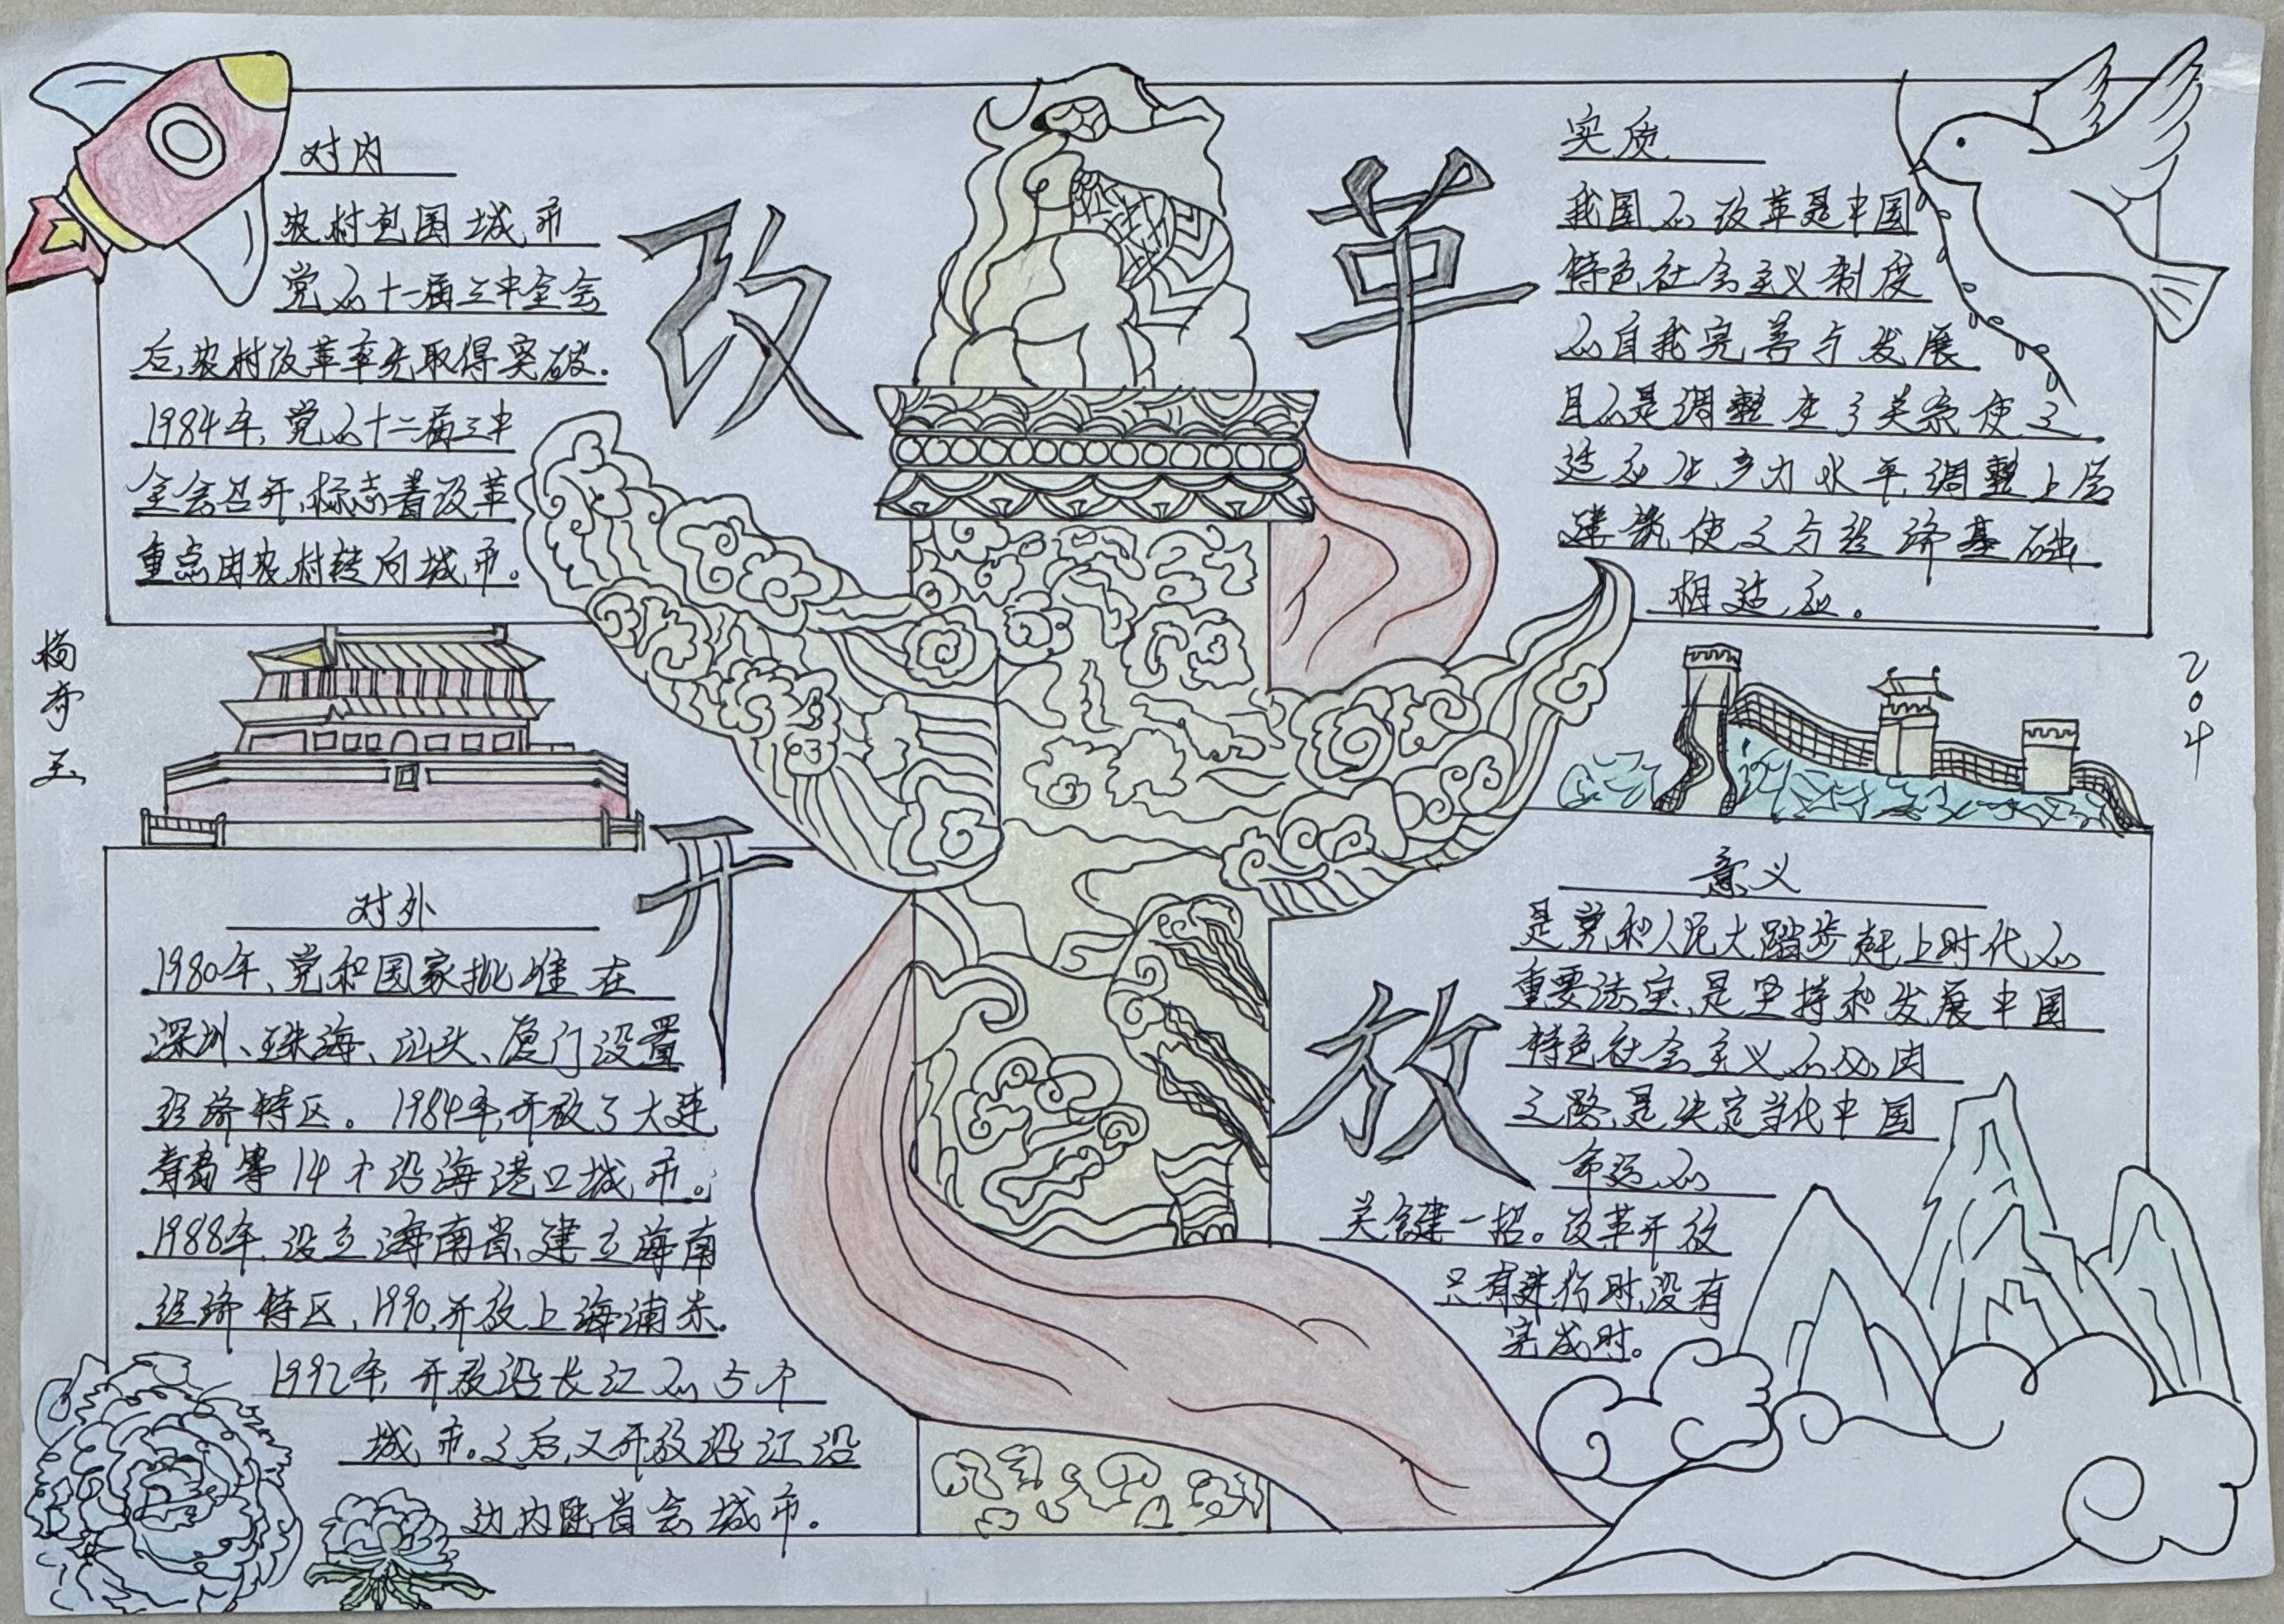 改革
开放
对内
农村包围城市
党的十一届三中全会
后,农村改革率先取得突破.
1984年,党的十二届三中
全会召开,标志着改革
重点由农村转向城市。
对外
1980年、党和国家批准在
深圳、珠海、汕头、厦门设置
经济特区。1984年,开放了大连
青岛等14个沿海港口城市。
1988年,设立海南省,建立海南
经济特区,1990,开放上海浦东.
1992年,开放沿长江的5个
城市。之后,又开放沿江沿
边内陆省会城市.
实质
我国的改革是中国
特色社会主义制度
的自我完善与发展
目的是调整生产关系使之
适应生产力水平,调整上层
建筑使之与经济基础
相适应。
意义
是党和人民大踏步赶上时代的
重要法宝,是坚持和发展中国
特色社会主义的必由
之路,是决定当代中国
命运的
关键一招。改革开放
只有进行时,没有
完成时。
杨奇玉
204